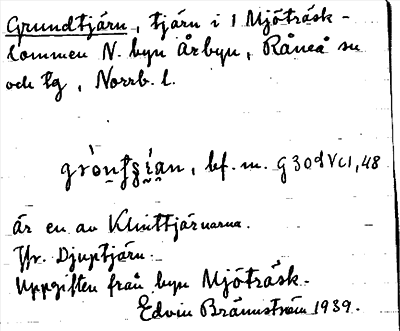 Grundtjärn, tjärn i 1 Mjöträsk-
kommen N. byn Årbyn, Råneå sn
och tg, Norrb. l.
bf. m. G30d Vc1,48
är en av Klinttjärnarna.
Jfr. Djuptjärn.
Uppgiften från byn Mjöträsk.
Edvin Brännström 1939.